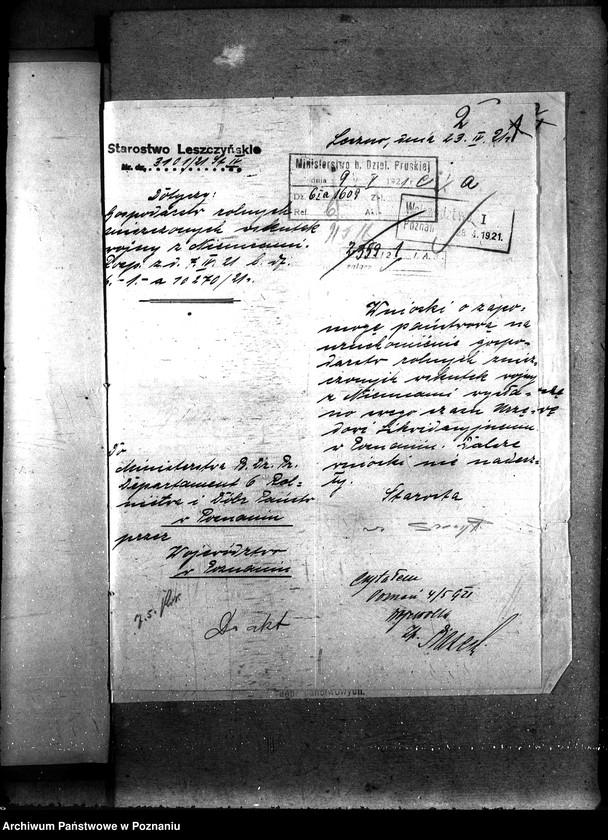 2
Starostwo Leszczyńskie
Nr. dz. 3101/21 IV
Leszno, dnia 23. IV. 21r.
Ministerstwo b. Dziel. Pruskiej
dnia 9 V 1921
Dz. 6za 1609
Ref. 6
Województwo I
Poznań 28.4.1921.
2999/21 I. A.
Dotyczy:
Gospodarstw rolnych
zniszczonych wskutek
wojny z Niemcami.
Rozp. z d. 7. IV. 21 l. dz.
6.-1.- a 10270/21.
Wnioski o zapo-
mogę państwową na
uruchomienie gospo-
darstw rolnych znisz-
czonych wskutek wojny
z Niemcami wysła-
no swego czasu Urzę-
dowi Likwidacyjnemu
w Poznaniu. Dalsze
wnioski nie nadesz-
ły.
Starosta
Do
Ministerstwa B. Dz. Pr.
Departament 6 Rol-
nictwa i Dóbr Państw
w Poznaniu
przez
Województwo
w Poznaniu
Czytałem
Poznań 4/5 921
Wojewoda
Do akt
Archiwum Państwowe w Poznaniu